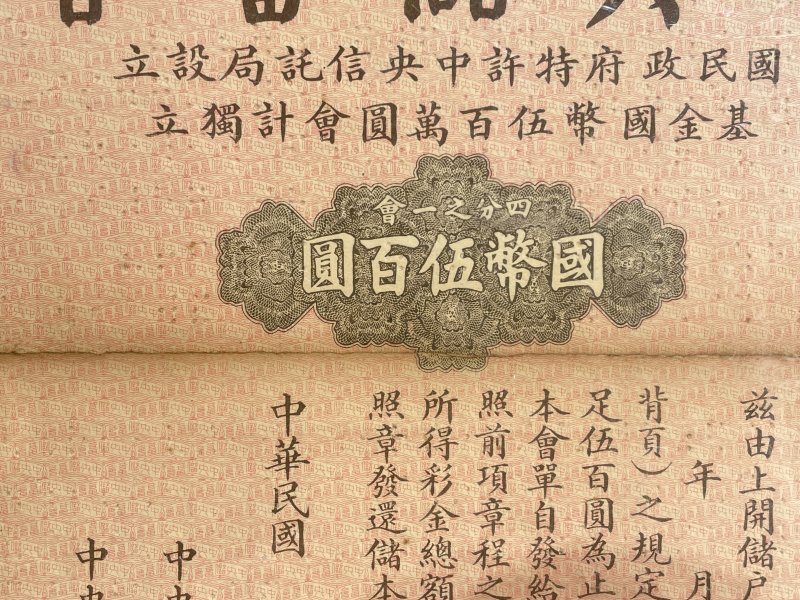 國民政府特許中央信託局設立
基金國幣伍百萬圓會計獨立
四分之一會
國幣伍百圓
茲由上開儲戶
年　月
背頁）之規定
足伍百圓為止
本會單自發給
照前項章程之
所得彩金總額
照章發還儲本
中華民國
中央
中央